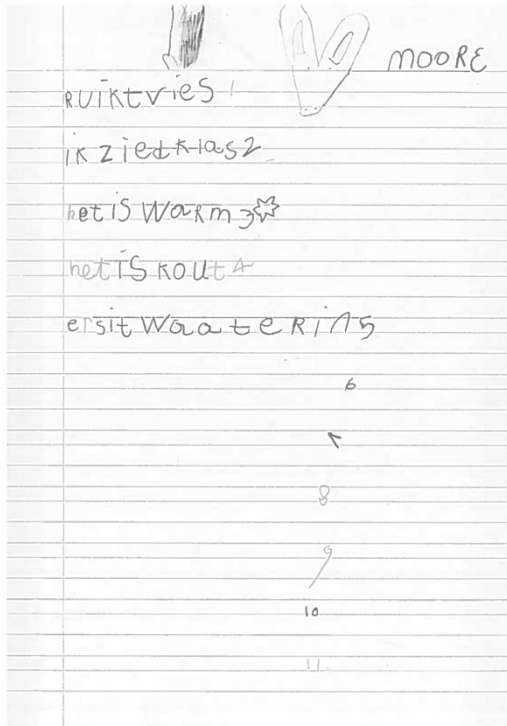 MOORE
RUiKtvies 1
iK ZietKlas 2
het iS WaRm 3
het iS KOUt 4
ersitWaateRin 5
6
7
8
9
10
11